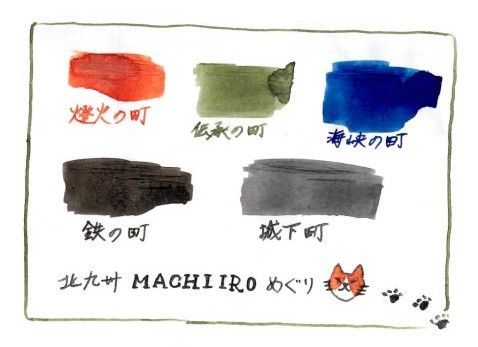 燈火の町
伝承の町
海峡の町
鉄の町
城下町
北九州 MACHIIRO めぐり